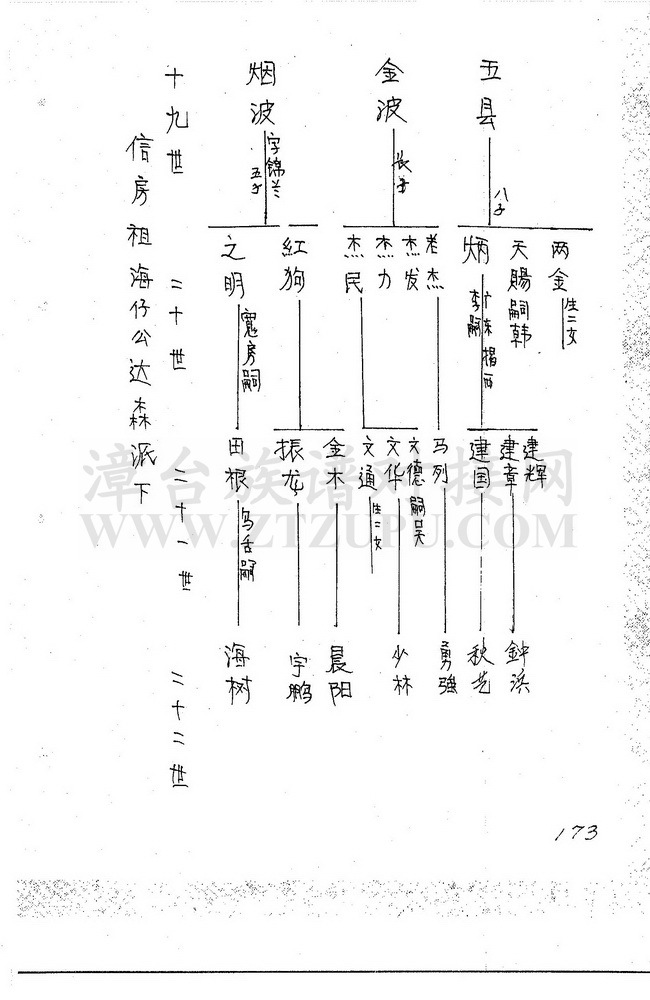 五县
八子
金波
长子
烟波
字锦兰
五子
十九世
信房祖海仔公达森派下
两金
生二女
天賜嗣韩
炳
广东揭西
李嗣
老杰
杰发
杰力
杰民
紅狗
之明
寬房嗣
二十世
建辉
建章
建国
马列
文德嗣吴
文华
文通
生二女
金木
振龙
田根
乌舌嗣
二十一世
鈡浜
秋艺
勇强
少林
晨阳
宇鹏
海树
二十二世
173
漳台族谱对接网
WWW.ZTZUPU.COM